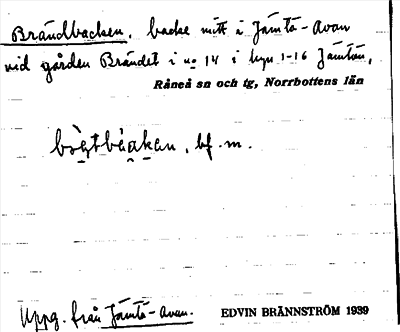 Brändbacken, backe mitt i Jämtö-Avan
vid gården Brändet i no 14 i hyn. 1-16 Jämtön,
Råneå sn och tg, Norrbottens län
bf. m.
Uppg. från Jämtö-Avan.
EDVIN BRÄNNSTRÖM 1939